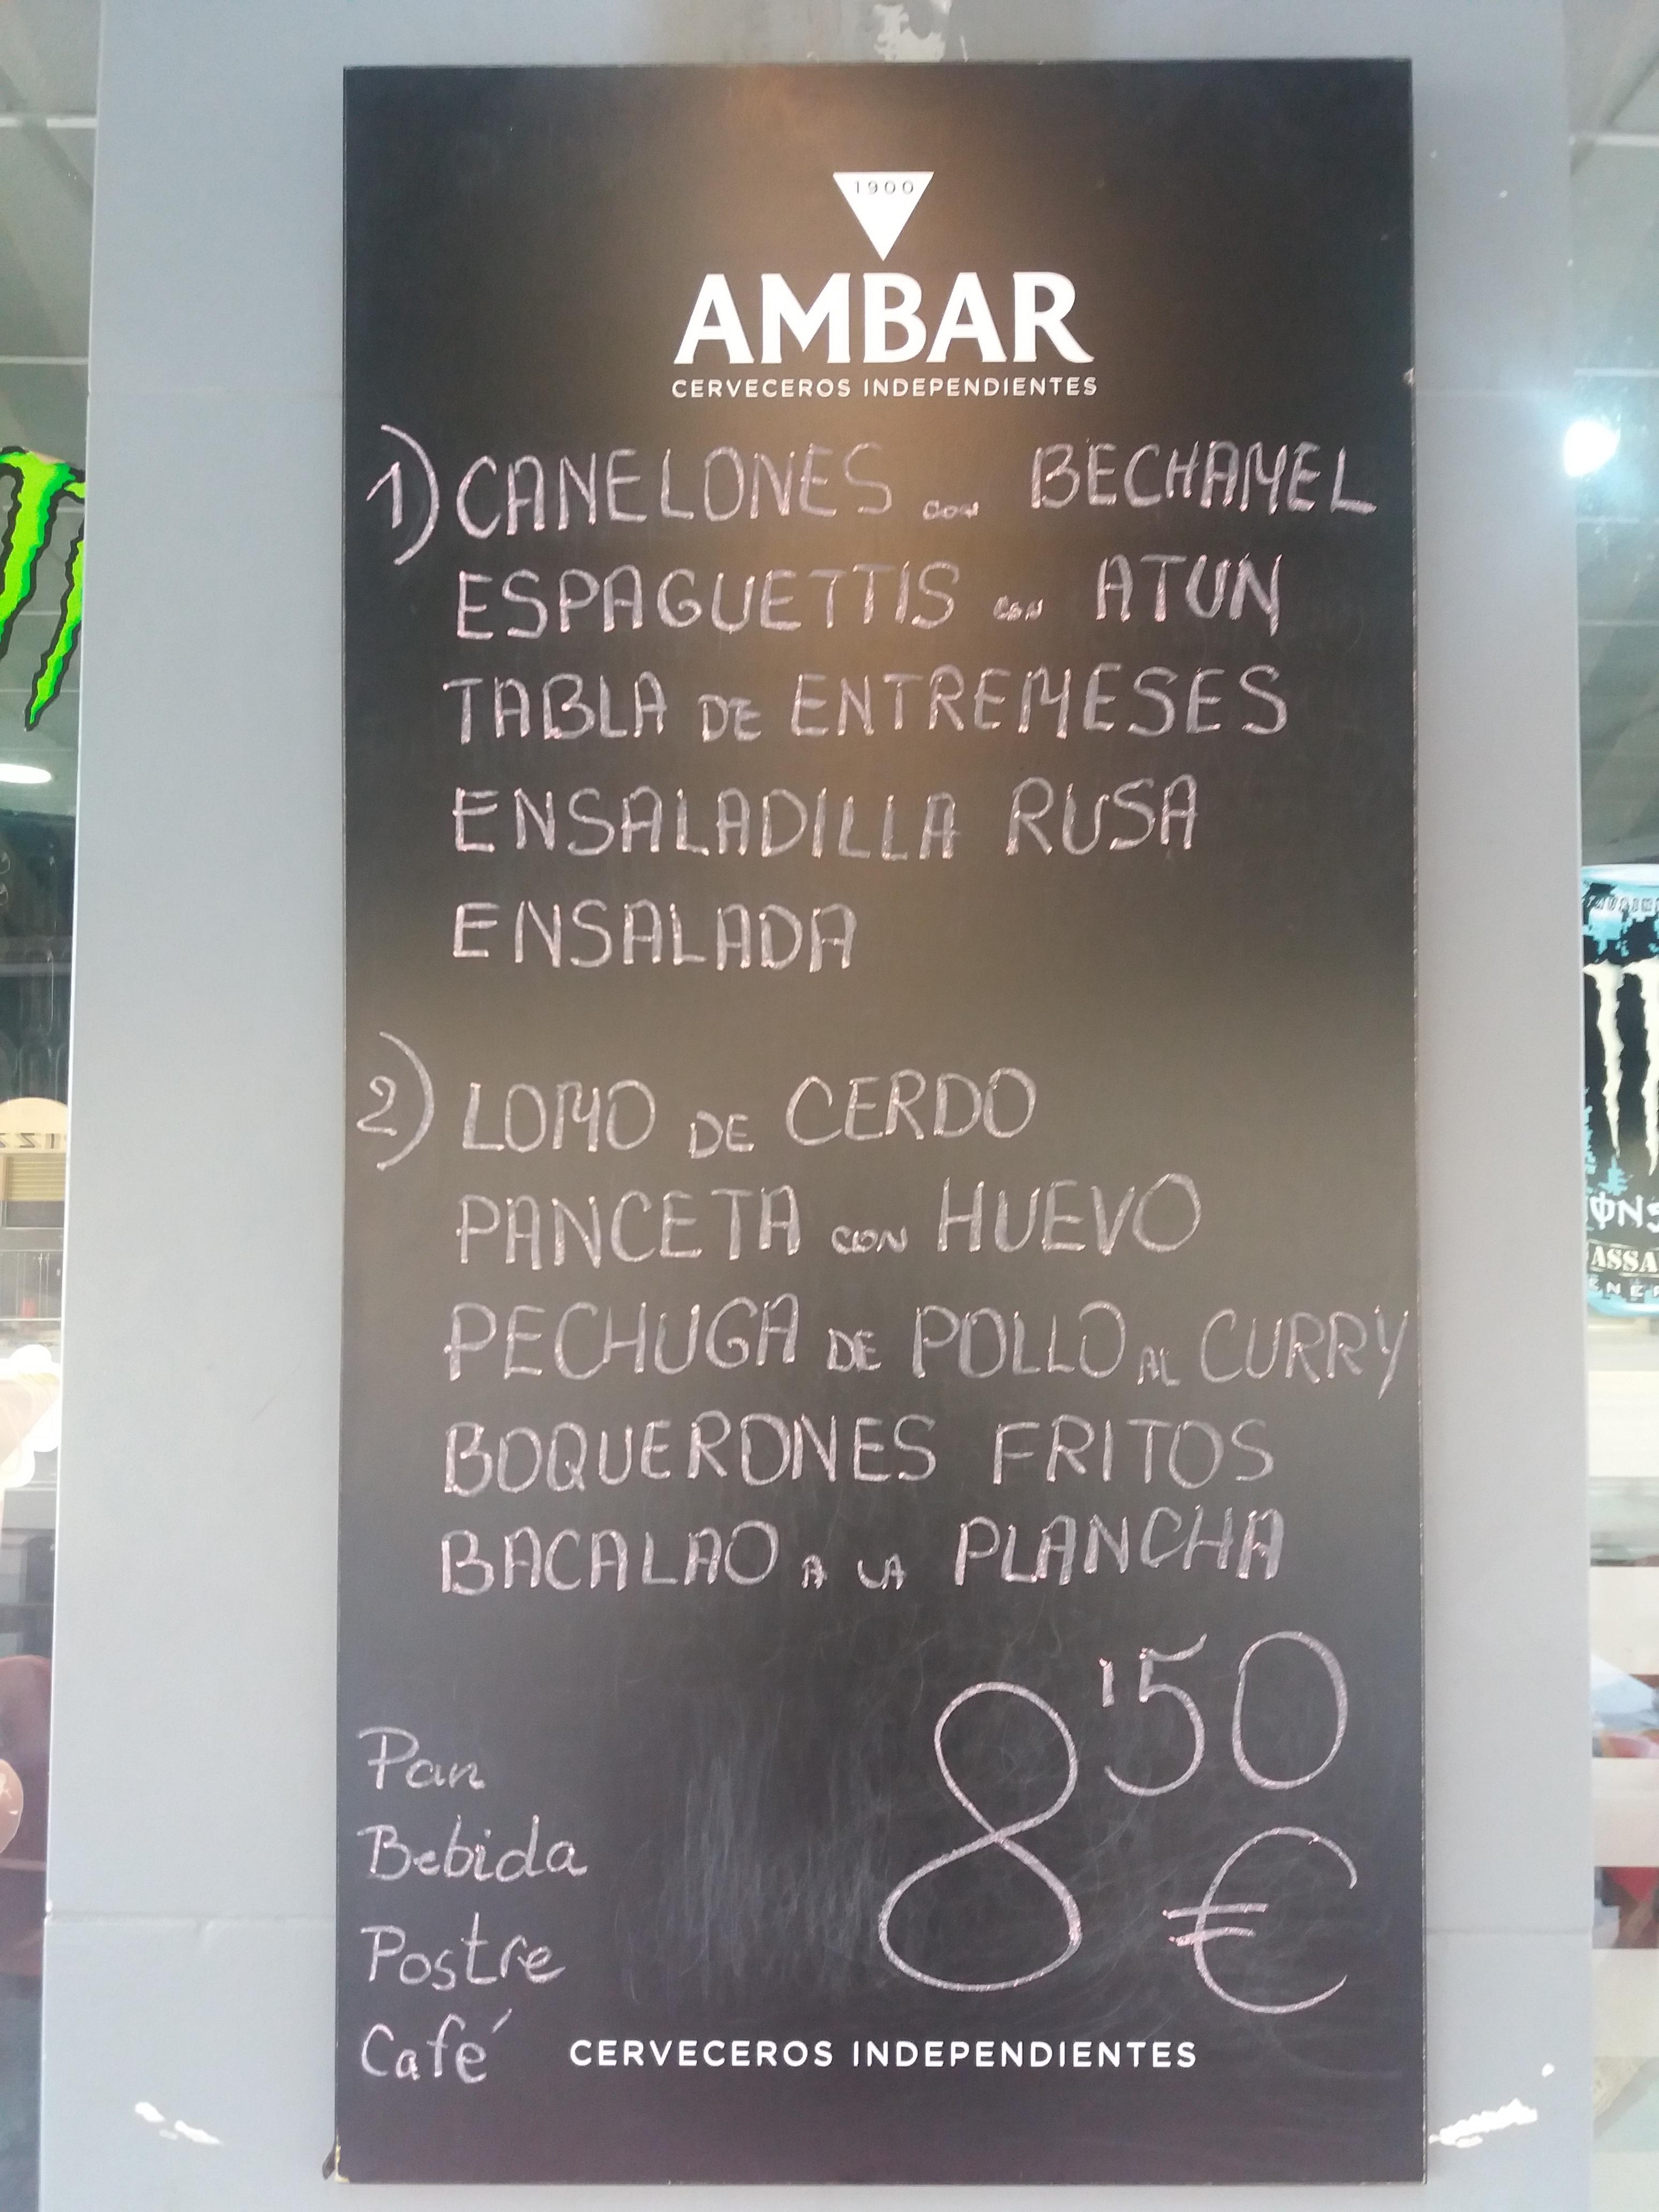 1900
AMBAR
CERVECEROS INDEPENDIENTES
1) CANELONES CON BECHAMEL
ESPAGUETTIS CON ATUN
TABLA DE ENTREMESES
ENSALADILLA RUSA
ENSALADA
2) LOMO DE CERDO
PANCETA CON HUEVO
PECHUGA DE POLLO AL CURRY
BOQUERONES FRITOS
BACALAO A LA PLANCHA
8'50
€
Pan
Bebida
Postre
Café
CERVECEROS INDEPENDIENTES